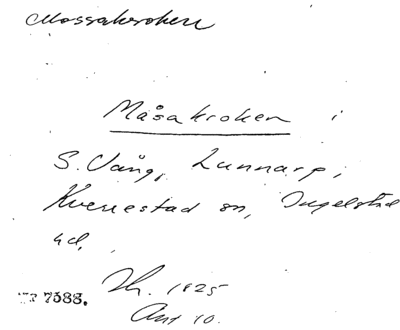 Mossakroken
Måsakroken i
S. Vång, Lunnarp,
Kverrestad sn, Ingelstad
hd.
Th. 1825
7588.
Akt 10.